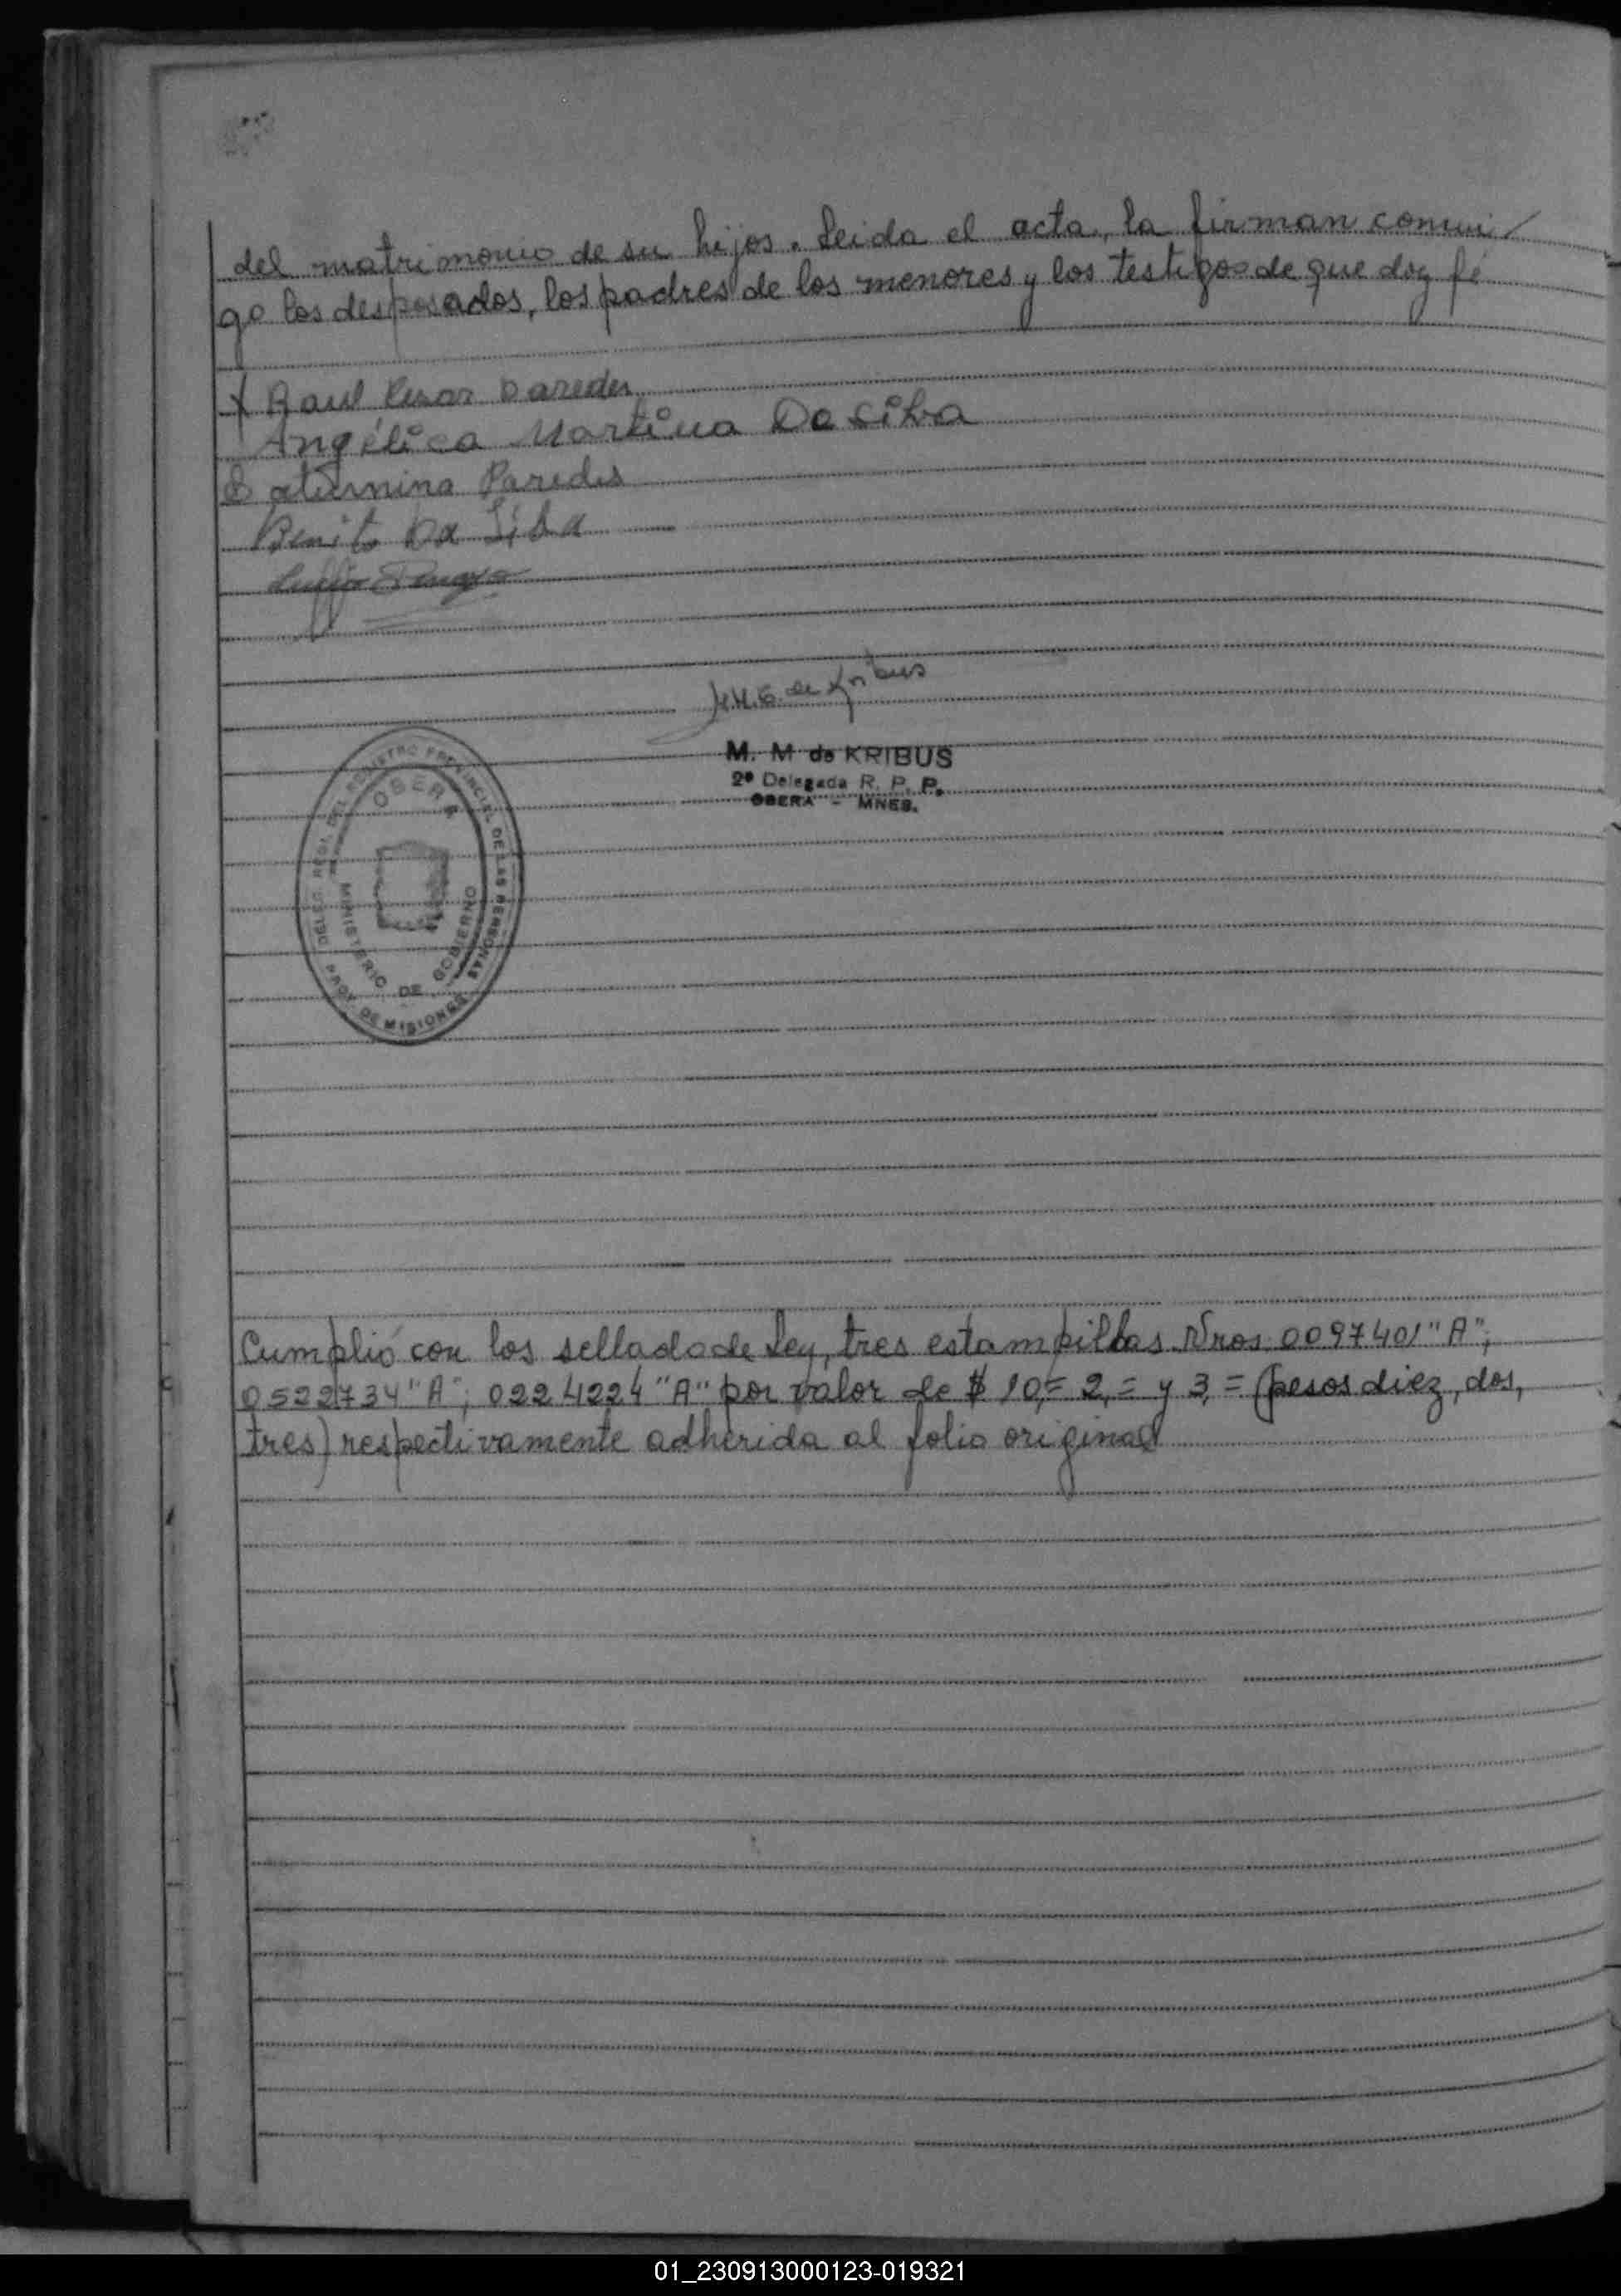 del matrimonio de su hijos. Leida el acta, la firman conmi/
go los desposados, los padres de los menores y los testigos de que doy fé
x Raul Cesar Paredes
Angélica Martina Da Silva
Saturnina Paredes
Benito Da Silva
M.M.G. de Kribus
M. M de KRIBUS
2ª Delegada R. P. P.
OBERA - MNES.
DELEG. REGI. DEL REGISTRO PROVINCIAL DE LAS PERSONAS
OBERA
MINISTERIO DE GOBIERNO
PROV. DE MISIONES
Cumplió con los sellado de Ley, tres estampillas Nros 0097401 "A";
0522734 "A"; 0224224 "A" por valor de $ 10,= 2,= y 3,= (pesos diez, dos,
tres) respectivamente adherida al folio original
01_230913000123-019321